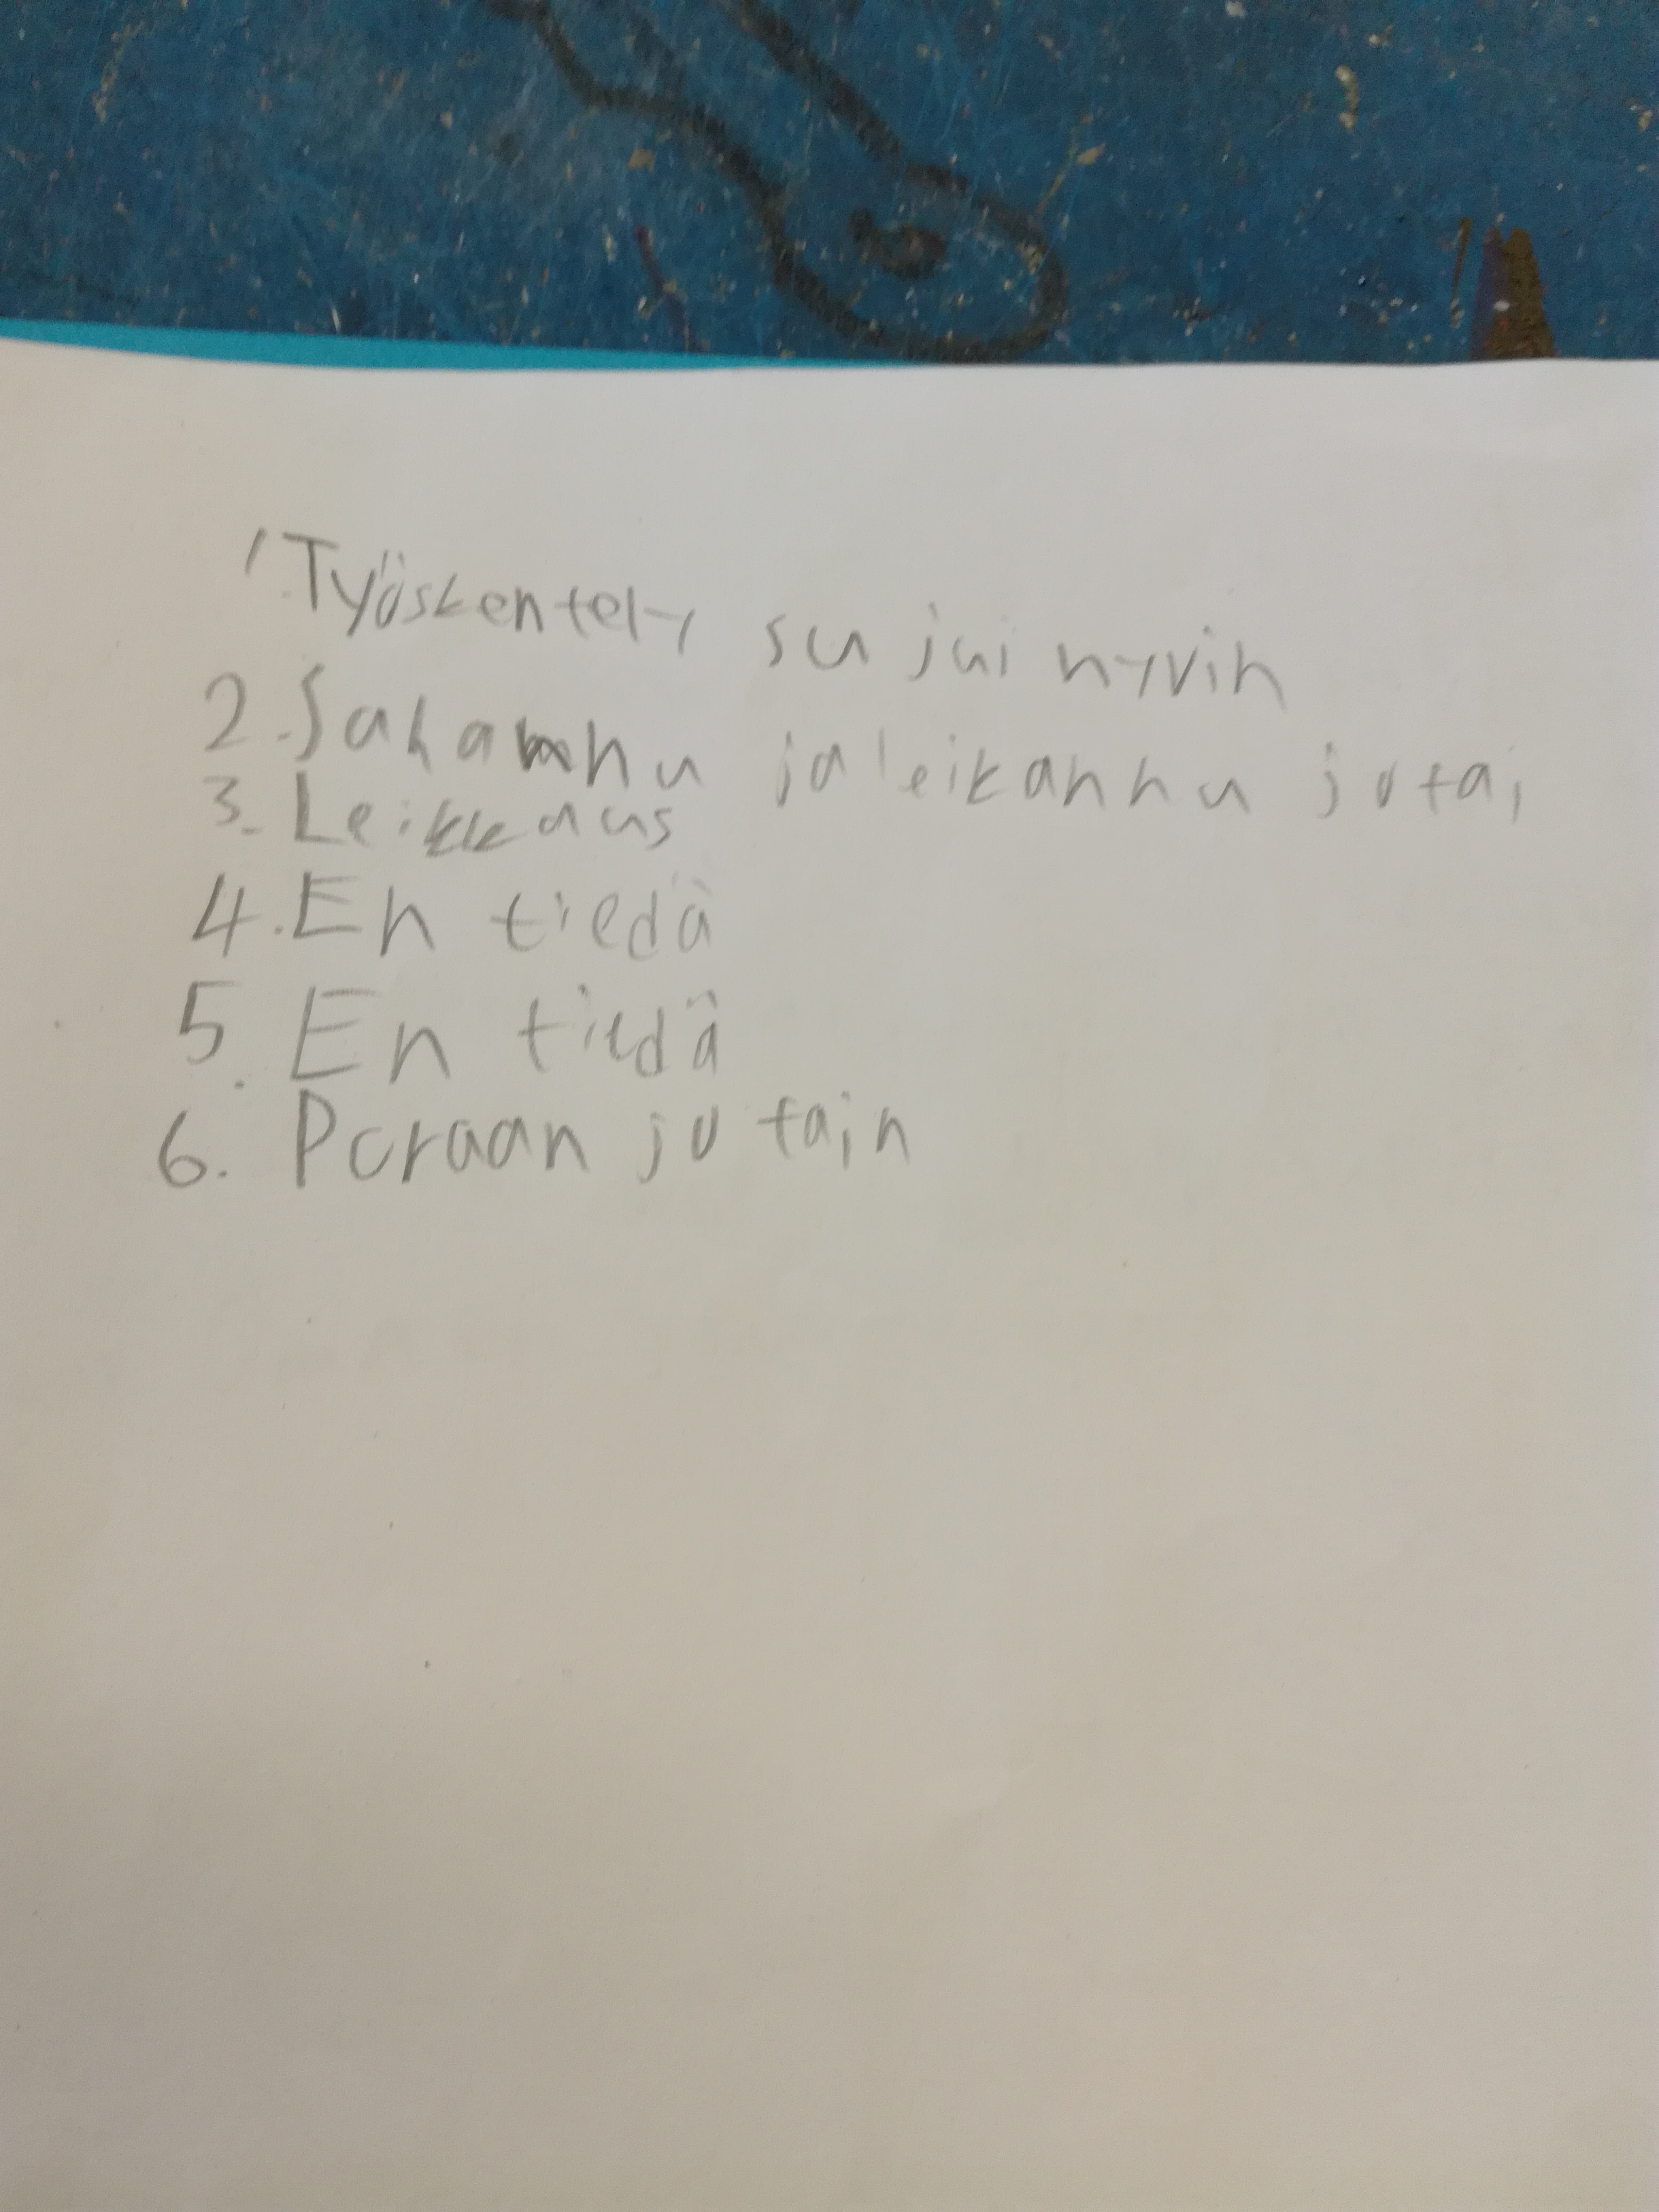 1. Työskentely sujui hyvin
2. Sahannu ja leikannu jotai
3. Leikkaus
4. En tiedä
5. En tiedä
6. Poraan jotain